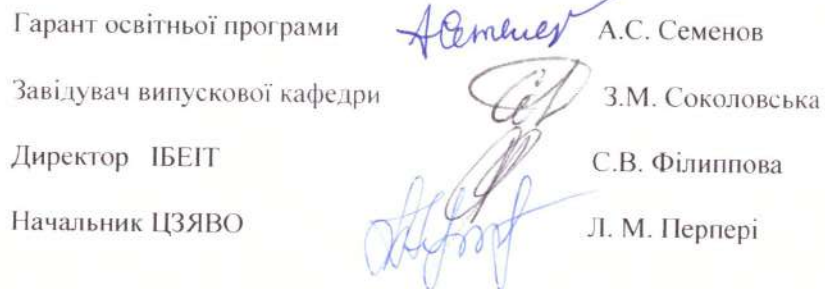 Гарант освітньої програми А.С. Семенов
Завідувач випускової кафедри З.М. Соколовська
Директор ІБЕІТ С.В. Філиппова
Начальник ЦЗЯВО Л. М. Перпері